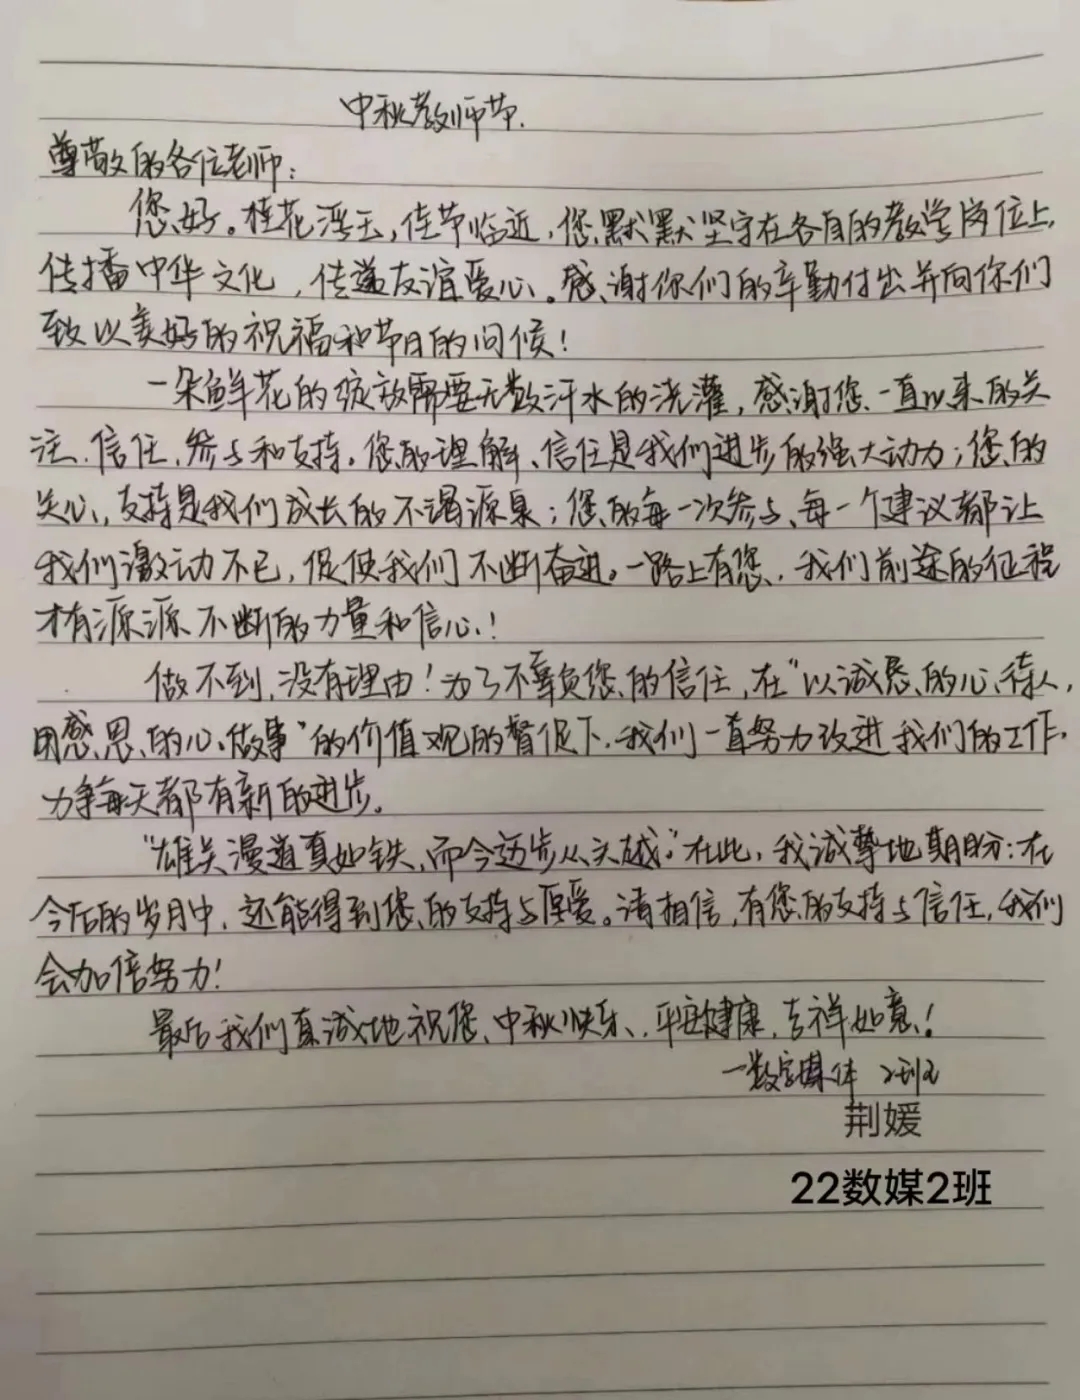 中秋教师节.
尊敬的各位老师：
您好。桂花浮玉，佳节临近，您默默坚守在各自的教学岗位上，
传播中华文化，传递友谊爱心。感谢你们的辛勤付出并向你们
致以美好的祝福和节日的问候！
一朵鲜花的绽放需要无数汗水的浇灌，感谢您一直以来的关
注、信任、参与和支持。您的理解、信任是我们进步的强大动力；您的
关心、支持是我们成长的不竭源泉；您的每一次参与、每一个建议都让
我们激动不已，促使我们不断奋进。一路上有您，我们前途的征程
才有源源不断的力量和信心！
做不到，没有理由！为了不辜负您的信任，在“以诚恳的心待人，
用感恩的心做事”的价值观的督促下，我们一直努力改进我们的工作，
力争每天都有新的进步。
“雄关漫道真如铁，而今迈步从头越。”在此，我诚挚地期盼：在
今后的岁月中，还能得到您的支持与厚爱。请相信，有您的支持与信任，我们
会加倍努力！
最后我们真诚地祝您、中秋快乐、平安健康，吉祥如意！
一数字媒体 2班
荆媛
22数媒2班